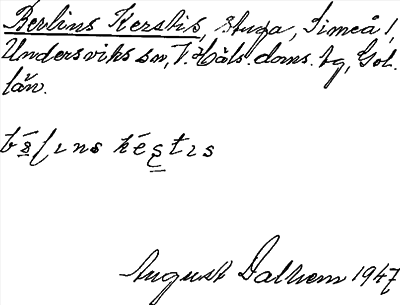 Berlins Kerstis, stuga, Simeå !,
Undersviks sn, V. Häls. doms. tg, Gol.
län.
August Dalhem 1947